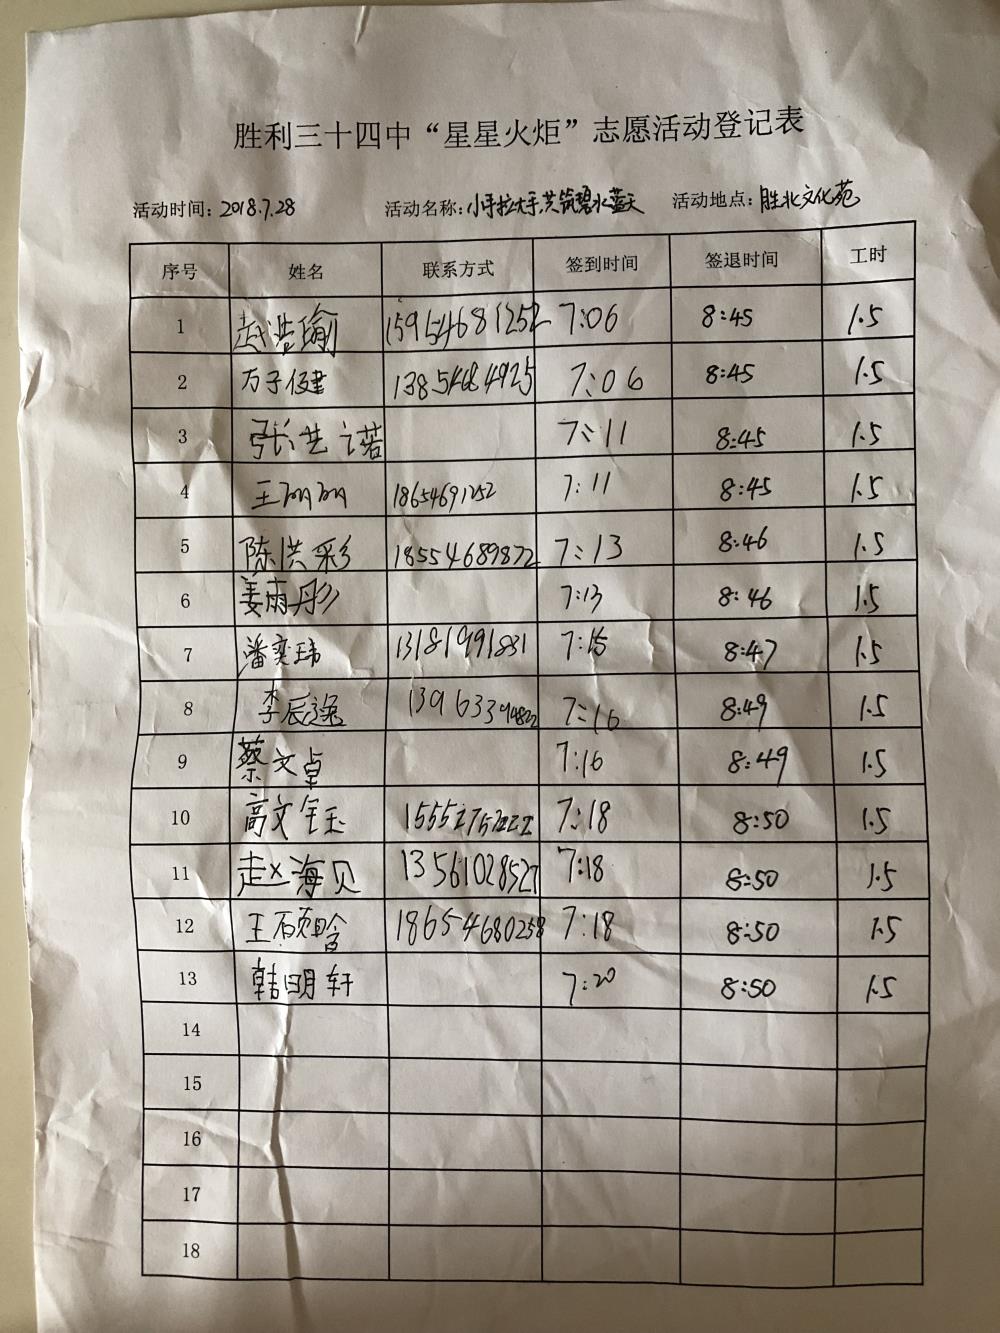 胜利三十四中“星星火炬”志愿活动登记表
活动时间：2018.7.28 活动名称：小手拉大手,共筑碧水蓝天 活动地点：胜北文化苑
序号 姓名 联系方式 签到时间 签退时间 工时
1 赵浩瑜 15954681252 7:06 8:45 1.5
2 万子健 13854684925 7:06 8:45 1.5
3 张艺诺 7:11 8:45 1.5
4 王丽丽 18654691252 7:11 8:45 1.5
5 陈洪彩 18554689872 7:13 8:46 1.5
6 姜雨彤 7:13 8:46 1.5
7 潘奕玮 13181991831 7:15 8:47 1.5
8 李辰逸 13963394822 7:16 8:49 1.5
9 蔡文卓 7:16 8:49 1.5
10 高文钰 7:18 8:50 1.5
11 赵海贝 13561028527 7:18 8:50 1.5
12 王硕晗 18654680258 7:18 8:50 1.5
13 韩明轩 7:20 8:50 1.5
14
15
16
17
18